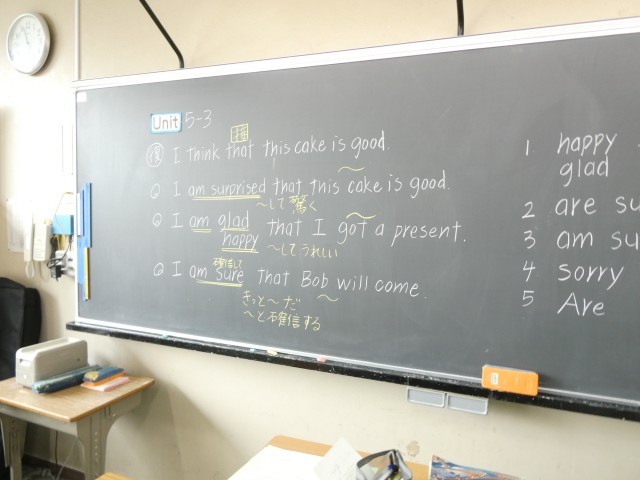 Unit 5-3
接
復 I think that this cake is good.
I am surprised that this cake is good.
～して驚く
I am glad that I got a present.
happy ～してうれしい
確信して
I am sure that Bob will come.
きっと～だ
～と確信する
1 happy
glad
2 are su
3 am su
4 sorry
5 Are